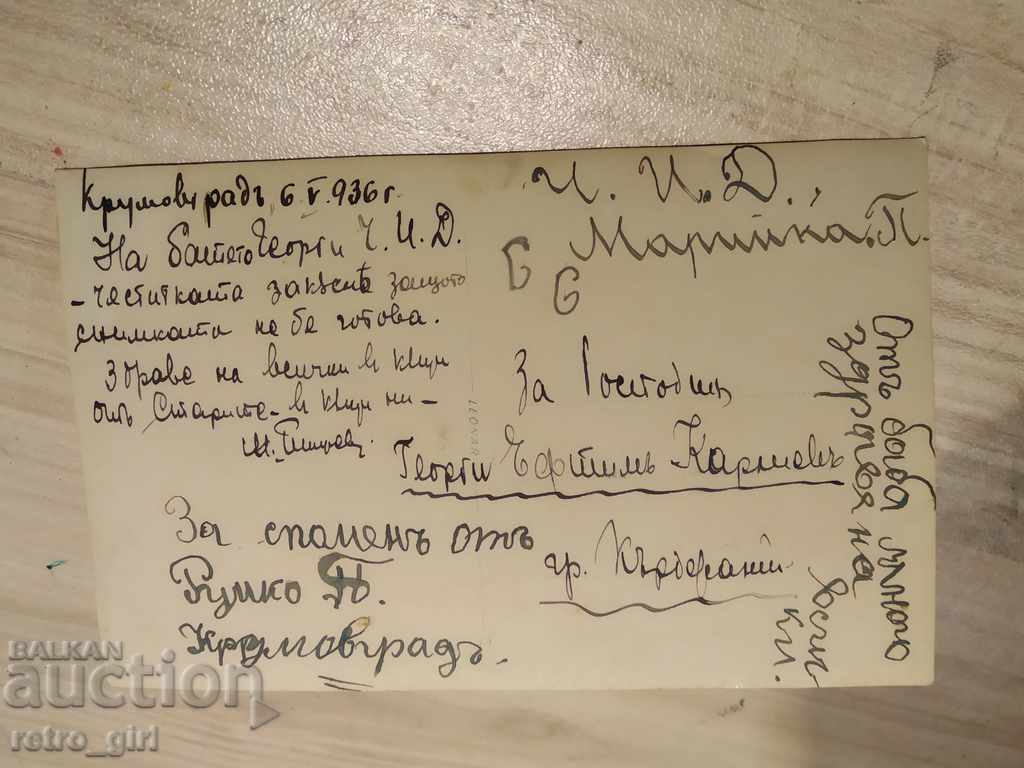 Крумовградъ 6 V. 936 г.
На батето Георги Ч. И. Д.
- честитката закъсне защото
снимката не бе готова.
Здраве на всички в кжщи
отъ старите - в кжщи ни -
За споменъ отъ
Ружко П.
Крумовградъ.
Ч. И. Д.,
Марийка. П.
За Господин
Георги Ефтимъ Карниевъ
гр. Кърджали
Отъ баба много
здравя на
LEONAR
BALKAN
auction
retro_girl